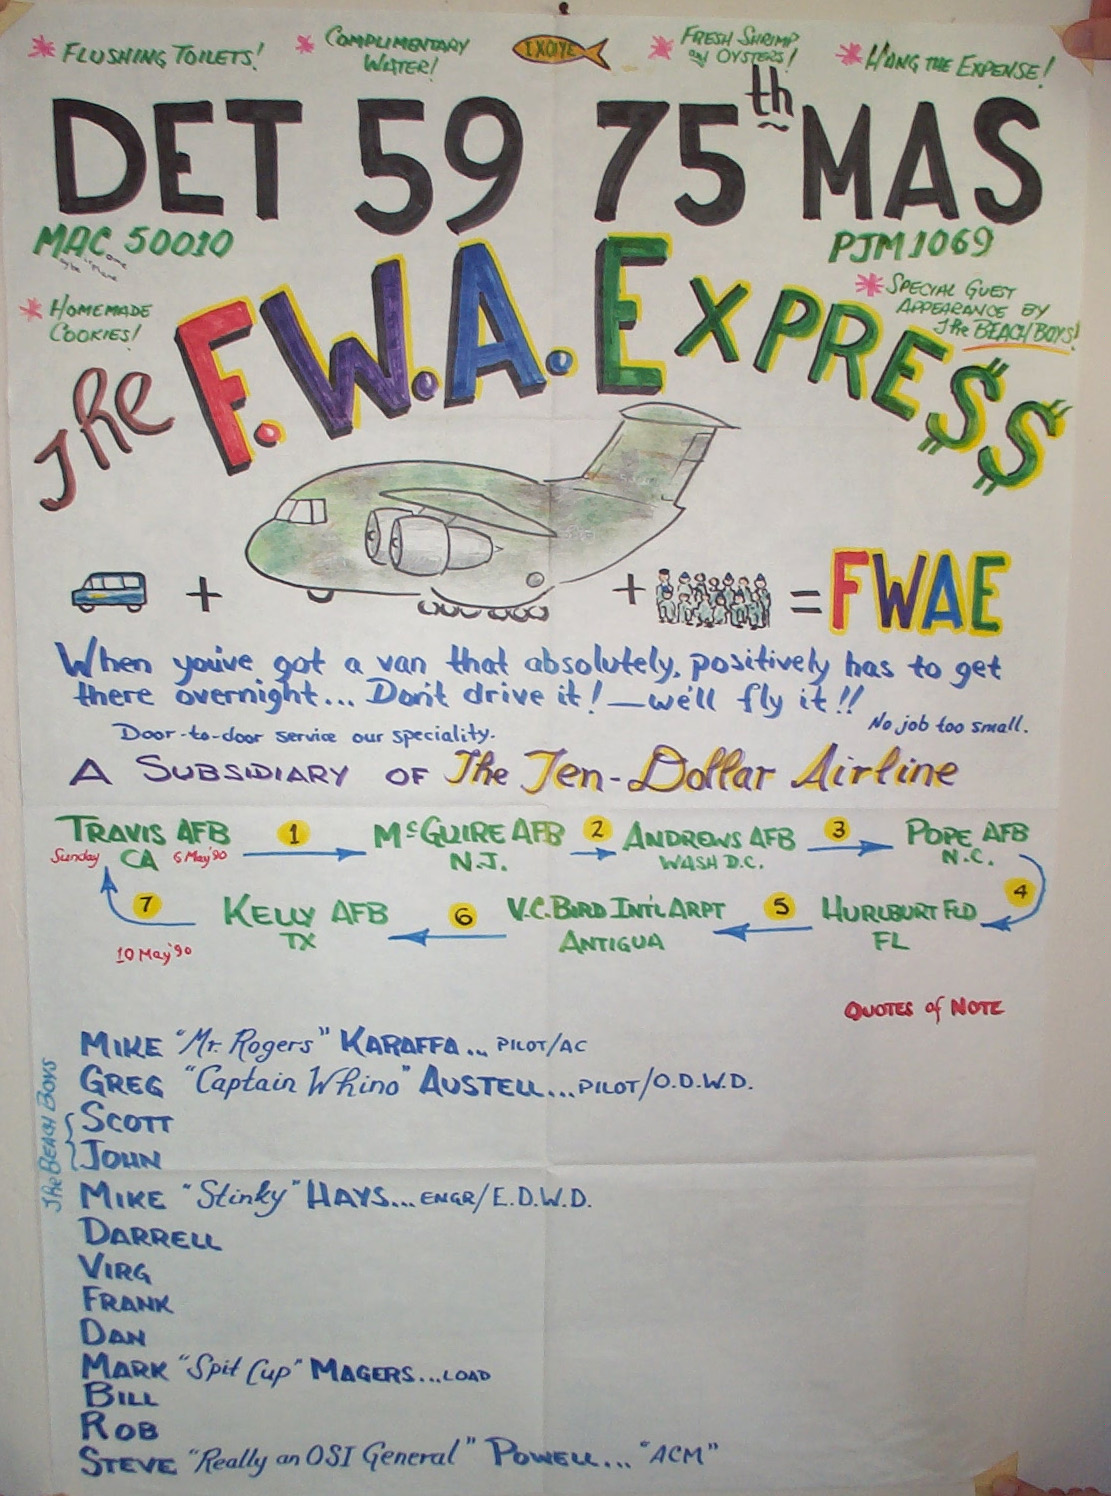 * FLUSHING TOILETS!
* COMPLIMENTARY
WATER!
IXOYE
* FRESH SHRIMP
and OYSTERS!
* HANG THE EXPENSE!
DET 59 75th MAS
MAC 50010
PJM 1069
* HOMEMADE
COOKIES!
* SPECIAL GUEST
APPEARANCE BY
The BEACH BOYS!
The F.W.A. EXPRE$$
+ + = FWAE
When you've got a van that absolutely, positively has to get
there overnight... Don't drive it! — we'll fly it!!
Door-to-door service our speciality.
No job too small.
A SUBSIDIARY OF The Ten-Dollar Airline
TRAVIS AFB 1 McGUIRE AFB 2 ANDREWS AFB 3 POPE AFB
Sunday CA 6 May '90 N.J. WASH D.C. N.C.
4
7 KELLY AFB 6 V.C. BIRD INT'L ARPT 5 HURLBURT FLD
TX ANTIGUA FL
10 May '90
QUOTES of NOTE
The BEACH BOYS
MIKE "Mr. Rogers" KARAFFA... PILOT/AC
GREG "Captain Whino" AUSTELL... PILOT/O.D.W.D.
SCOTT
JOHN
MIKE "Stinky" HAYS... ENGR/E.D.W.D.
DARRELL
VIRG
FRANK
DAN
MARK "Spit Cup" MAGERS... LOAD
BILL
ROB
STEVE "Really an OSI General" POWELL... "ACM"